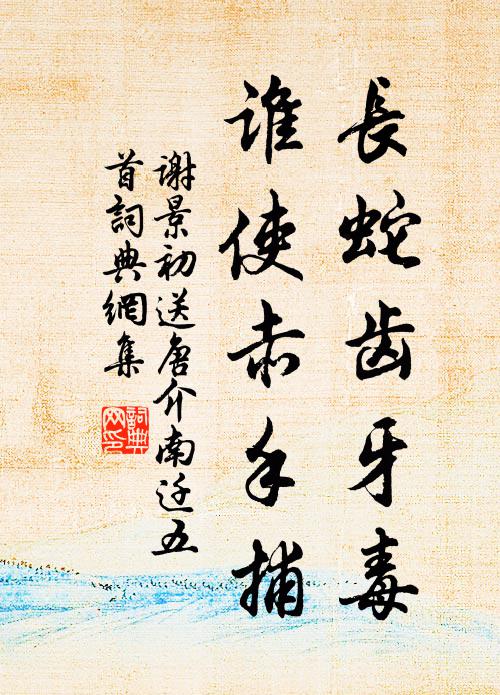 長蛇齿牙毒
谁使赤手捕
谢景初送唐介南迁五
首詞典網集
詞典网印